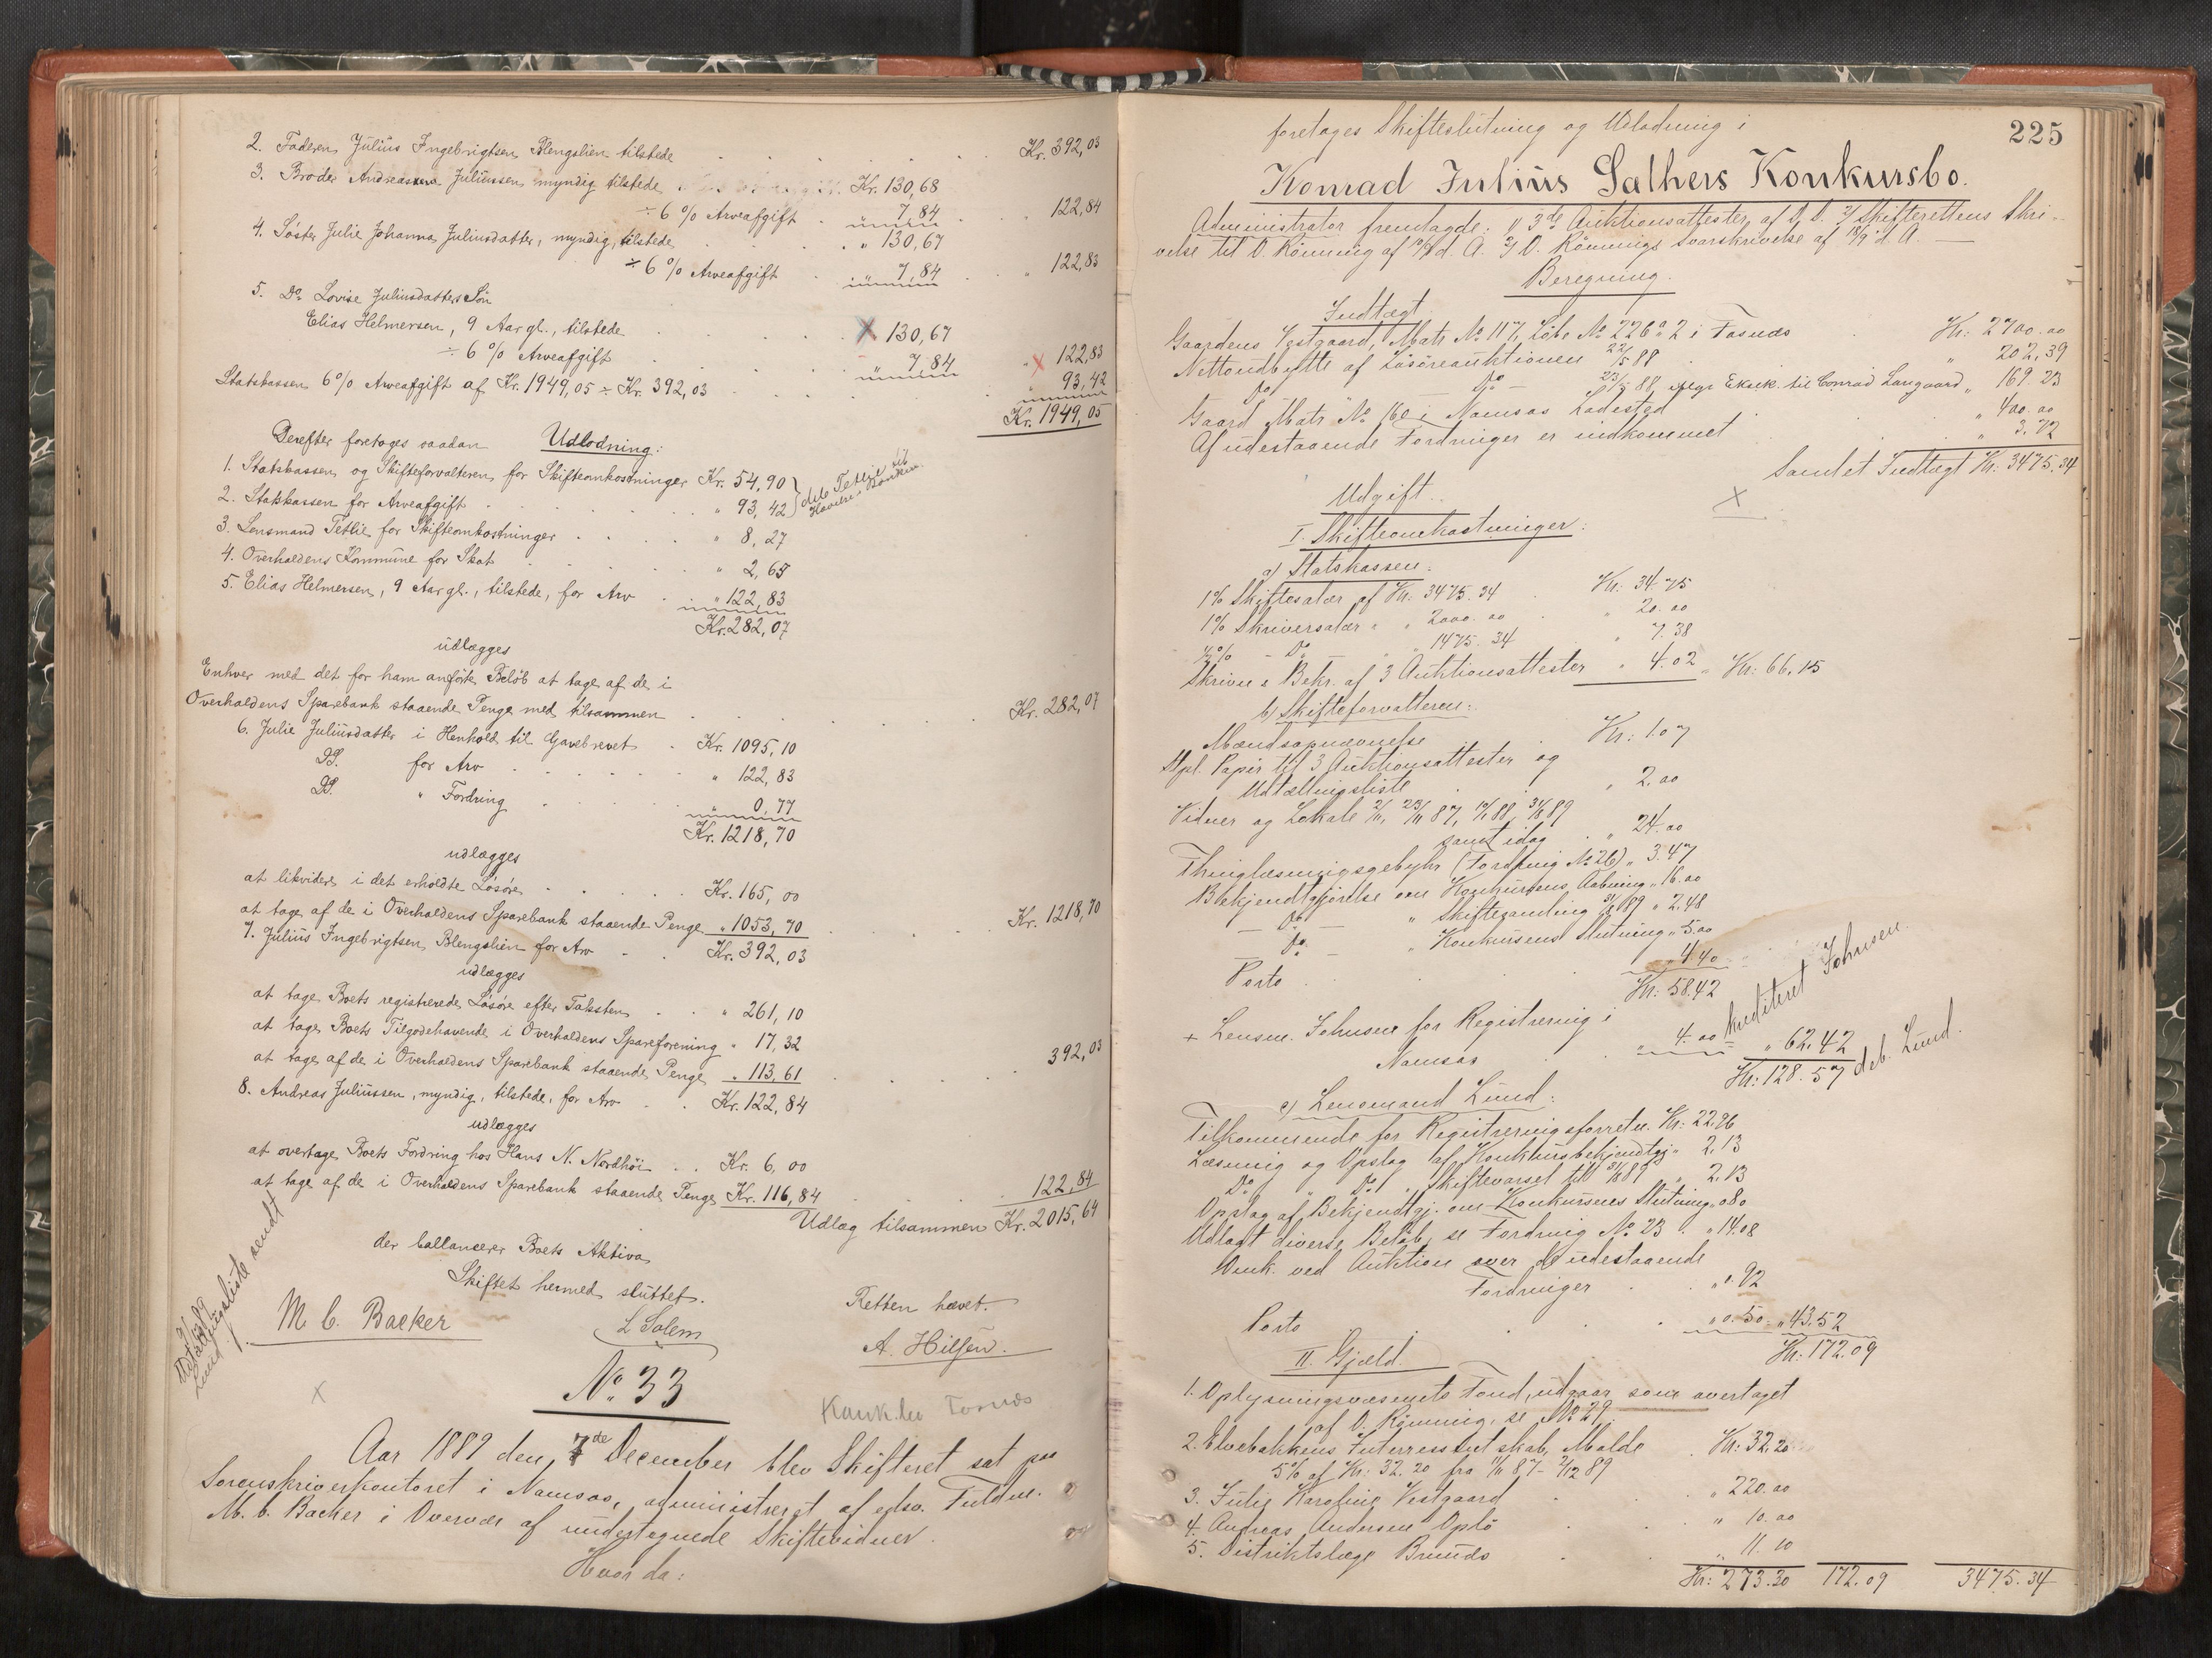 2. Faderen Julius Ingebrigtsen Blengslien tilstede . . . . . . Kr. 392,03
3. Broder Andreas Juliussen myndig tilstede Kr. 130,68
÷ 6 % Arveafgift . " 7,84 . . " 122,84
4. Søster Julie Johanna Juliusdatter, myndig, tilstede . . . " 130,67
÷ 6 % Arveafgift . . " 7,84 . . " 122,83
5. Do Lovise Juliusdatters Søn
Elias Helmersen, 9 Aar gl., tilstede . . . . X 130,67
÷ 6 % Arveafgift . . . " 7,84 . . " X 122,83
Statskassen 6 % Arveafgift af Kr. 1949,05 ÷ Kr. 392,03 . . . . . . 93,42
Kr. 1949,05
Derefter foretoges saadan Udlodning:
1. Statskassen og Skifteforvalteren for Skifteomkostninger Kr. 54,90
2. Statskassen for Arveafgift . . . . . " 93,42
3. Lensmand Tetlie for Skifteomkostninger . . . " 8,27
4. Overhaldens Kommune for Skat . . . . " 2,65
5. Elias Helmersen, 9 Aar gl., tilstede, for Arv . . " 122,83
Kr. 282,07
udlægges
Enhver med det for ham anførte Beløb at tage af de i
Overhaldens Sparebank staaende Penge med tilsammen . . . . . . Kr. 282,07
6. Julie Juliusdatter i Henhold til Gavebrevet . Kr. 1095,10
DS. for Arv . . . . . " 122,83
DS. " Fordring . . . . " 0,77
Kr. 1218,70
udlægges
at likvidere i det erholdte Løsøre . . . . Kr. 165,00
at tage af de i Overhaldens Sparebank staaende Penge " 1053,70 . . . . . Kr. 1218,70
7. Julius Ingebrigtsen Blengslien for Arv . . Kr. 392,03
udlægges
at tage Boets registrerede Løsøre efter Taksten . . " 261,10
at tage Boets Tilgodehavende i Overhaldens Spareforening " 17,32
at tage af de i Overhaldens Sparebank staaende Penge " 113,61 . . . . . 392,03
8. Andreas Juliussen, myndig, tilstede, for Arv . . Kr. 122,84
udlægges
at overtage Boets Fordring hos Hans N. Nordhøi . . Kr. 6,00
at tage af de i Overhaldens Sparebank staaende Penge Kr. 116,84 . . . . 122,84
Udlæg tilsammen Kr. 2015,64
der ballancerer Boets Aktiva
Skiftet hermed sluttet.
Retten hævet.
M. C. Backer
L Solem
A. Hilsen.
Udlodningsliste sendt
Lund
No. 33
X
Konk.bo Fosnæs
Aar 1889 den 7de December blev Skifteret sat paa
Sorenskriverkontoret i Namsos, administreret af edsv. Fuldm.
M. C. Backer i Overvær af undertegnede Skiftevidner.
Hvor da:
225
foretages Skifteslutning og Udlodning i
Konrad Julius Sæthers Konkursbo.
Administrator fremlagde: 1/ 3de Auktionsattester, af D. D. 2/ Skifterettens Skri-
velse til O. Rönning af d. A. 3/ O. Rönnings Svarskrivelse af 18/9 d. A. —
Beregning.
Indtægt.
Gaardens Vestgaard, Matr No 117, Løbe No 226a2 i Fosnæs . Kr: 2700.00
Nettoudbytte af Løsøreauktionen 22/5 88 . " 202,39
Do Do 23/5 88, Eksek. til Conrad Langaard " 169.23
Gaard Matr. No 160 i Namsos Ladested . " 400.00
Af udestaaende Fordringer er indkommet . " 3.72
Samlet Indtægt Kr: 3475.34
X
Udgift.
I. Skifteomkostninger:
a) Statskassen:
1% Skiftesalær af Kr: 3475.34 . Kr: 34.75
1% Skriversalær " " 2000.00 . " 20.00
½% - Do - " 1475.34 " 7.38
Skriver & Bekr. af 3 Auktionsattester " 4.02 " Kr: 66.15
b) Skifteforvalteren:
Mændsopnævnelse . Kr: 1.07
Stpl. Papir til 3 Auktionsattester og
Udlodningsliste . " 2.00
Vidner og Lokale
samt idag . " 24.00
Thinglæsningsgebyhr (Fordring No 26) " 3.47
Bekjendtgjørelse om Konkursens Aabning " 16.00
— Do — " Skiftesamling 89 " 2.48
— Do — " Konkursens Slutning " 5.00
Porto . . " 4.40
Kr: 58.42
+ Lensm. Johnsen for Registrering i
Namsos . . " 4.00 krediteret Johnsen. " 62.42
Kr: 128.57 deb. Lund.
c) Lensmand Lund:
Tilkommende for Registreringsforretn. Kr: 22.96
Læsning og Opslag af Konkursbekjendtgj. " 2,13
Do " Do " Skiftevarsel til 89 " 2.13
Opslag af Bekjendtgj. om Konkursens Slutning " 0.80
Udlagt diverse Beløb, se Fordring No 23 . " 14.08
Omk. ved Auktion over de udestaaende
Fordringer . " 0.92
Porto . . " 0.50 " 43.52
Kr: 172.09
II. Gjæld.
1. Oplysningsvæsenets Fond, udgaar som overtaget
af O. Rönning, se No 29.
2. Elvebakkens Interressentskab, Malde . Kr: 32.20
5% af Kr: 32.20 fra 87 - 7/12 89
3. Julie Karoline Vestgaard . . " 220.00
4. Andreas Andersen Oplø . . " 10.00
5. Distriktslæge . . " 11.10
Kr: 273.30 172.09 3475.34